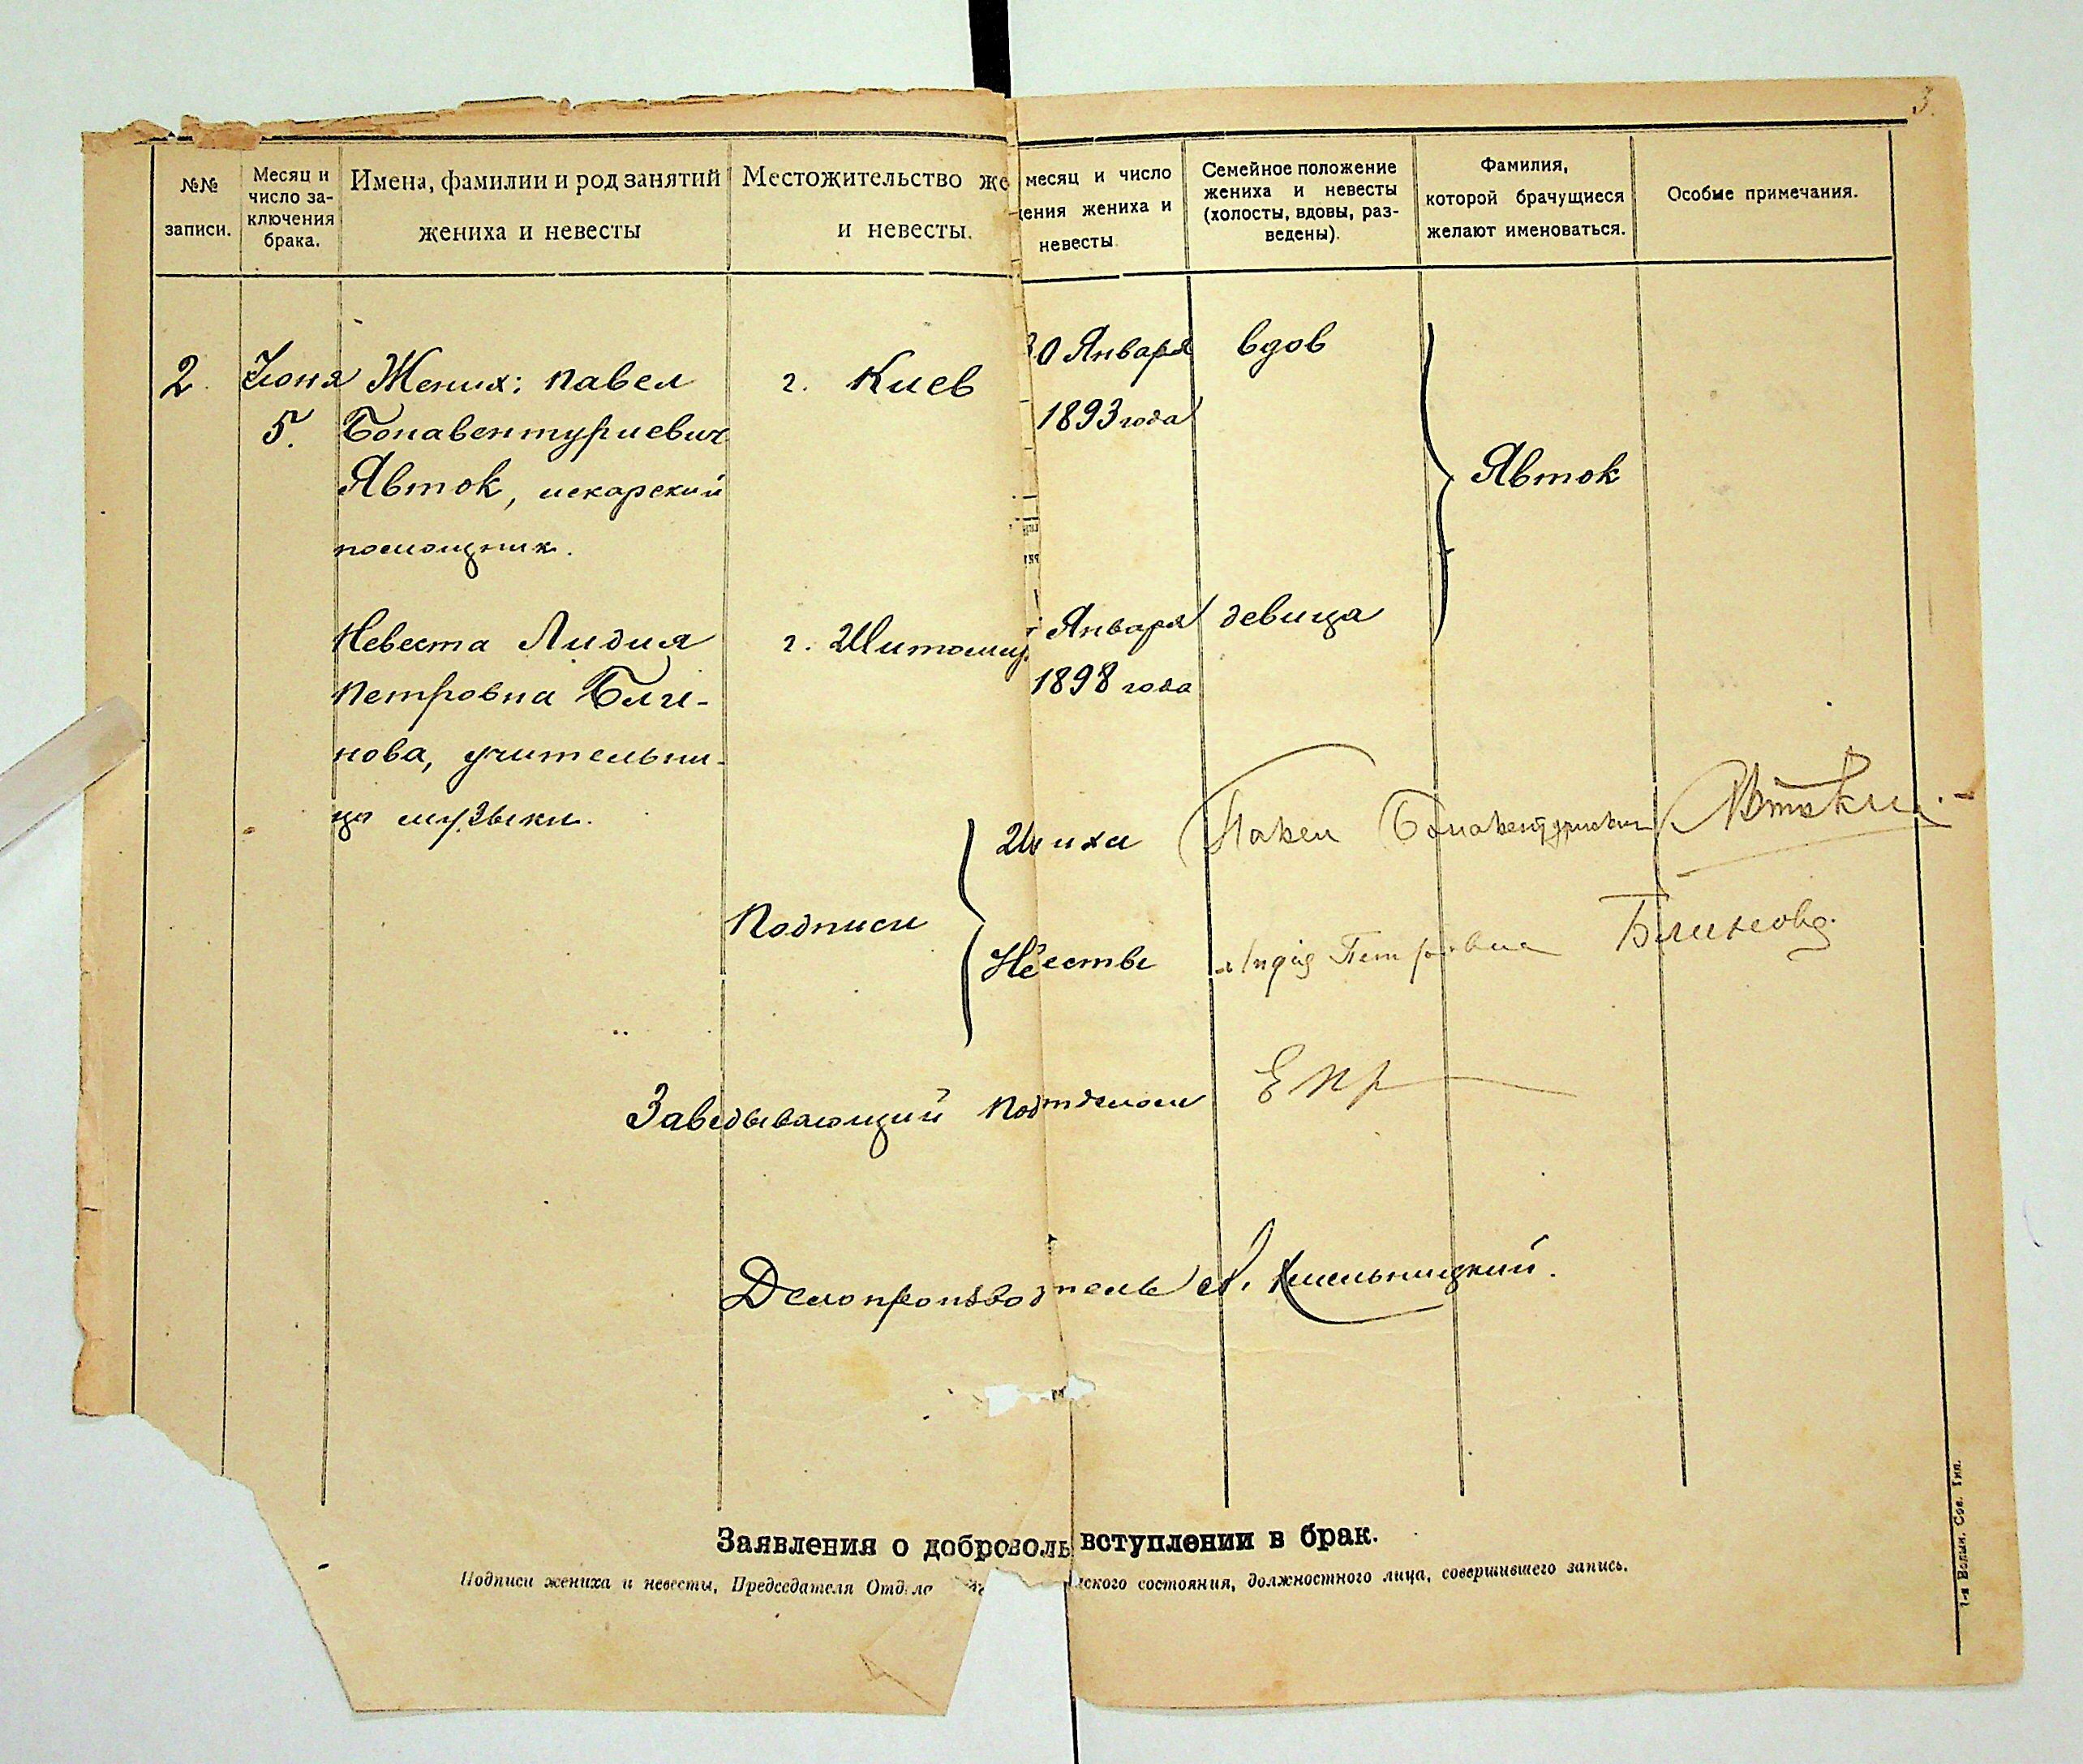 3.
№№ записи.
Месяц и число за-ключения брака.
Имена, фамилии и род занятий жениха и невесты
Местожительство же
и невесты.
месяц и число
ения жениха и
невесты.
Семейное положение
жениха и невесты
(холосты, вдовы, раз-
ведены).
Фамилия,
которой брачущиеся
желают именоваться.
Особые примечания.
2. Июня Жених: Павел г. Киев 30 Января вдов
5. Бонавентуриевич 1893 года
Явток, лекарский Явток
помощник.
Невеста Лидия г. Житомир Января девица
Петровна Бли- 1898 года
нова, учительни-
ца музыки.
Жниха Павел Бонавентуриевич
Подписи
Невесты Лидія Петровна Блинова.
Заведывающий Подотделом
Делопроизводитель Хмельницкий.
Заявления о доброволь вступлении в брак.
Подписи жениха и невесты, Председателя Отдела ского состояния, должностного лица, совершившего запись.
1-я Волын. Сов. Тип.